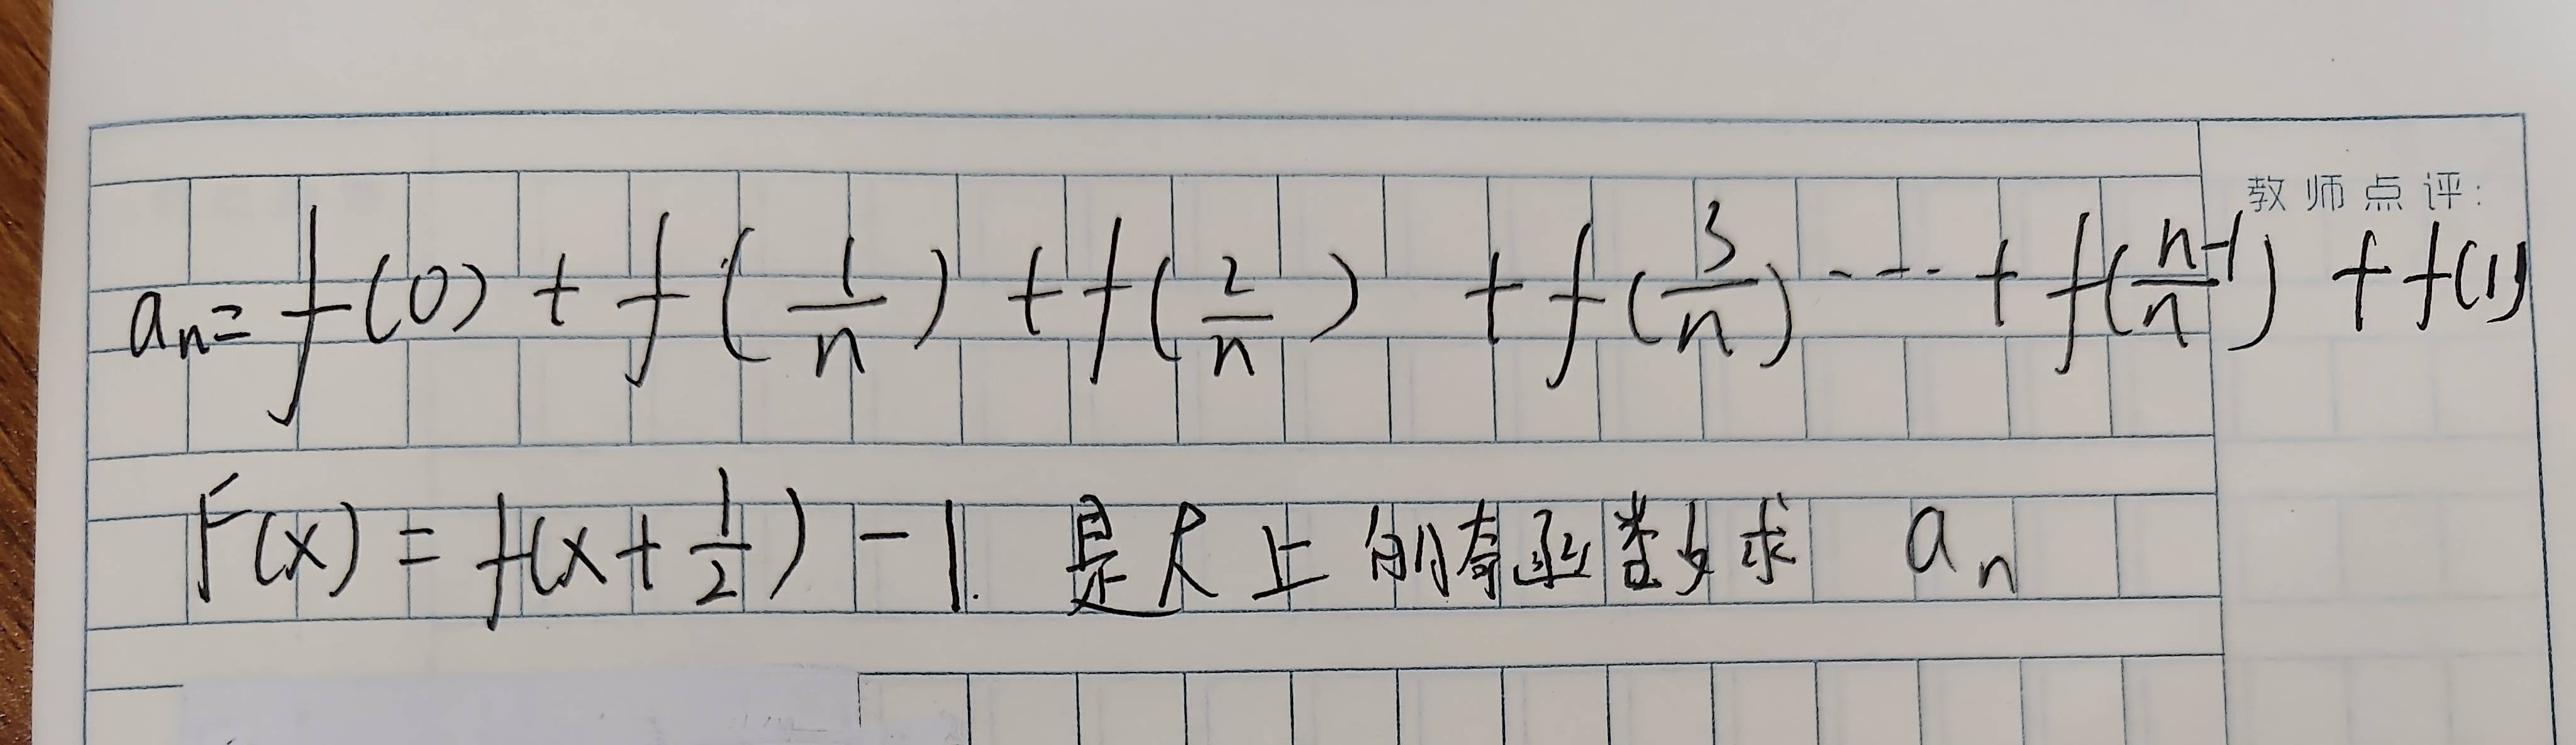 教师点评:
aₙ= f(0) + f(1/n) + f(2/n) + f(3/n) ---- + f(n-1/n) + f(1)
F(x) = f(x+1/2) - 1. 是R上的奇函数求 aₙ